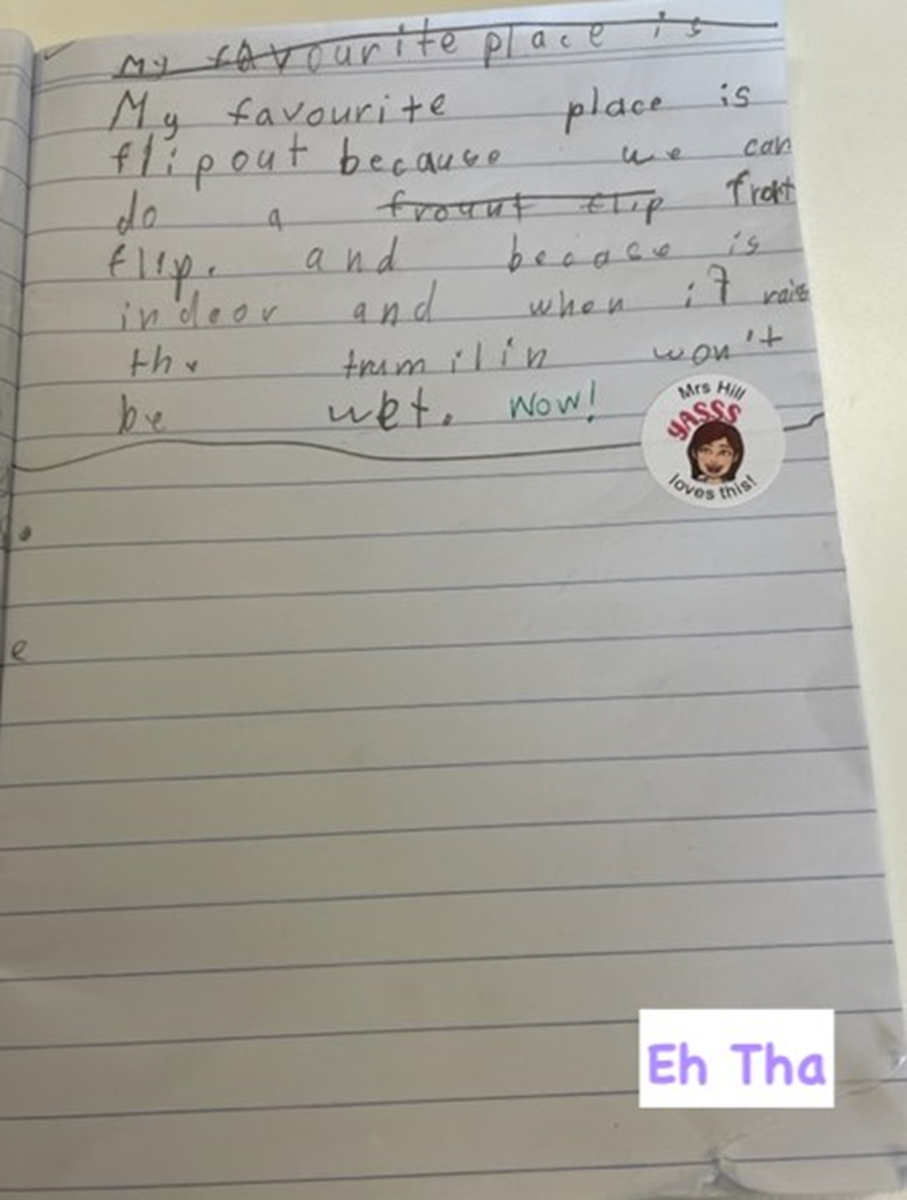 My favourite place is
My favourite place is
flipout because we can
do a frount flip front
flip. and becace is
indoor and when it rais
the trumilin won't
be wet. Wow!
Mrs Hill
YASSS
loves this!
e
Eh Tha